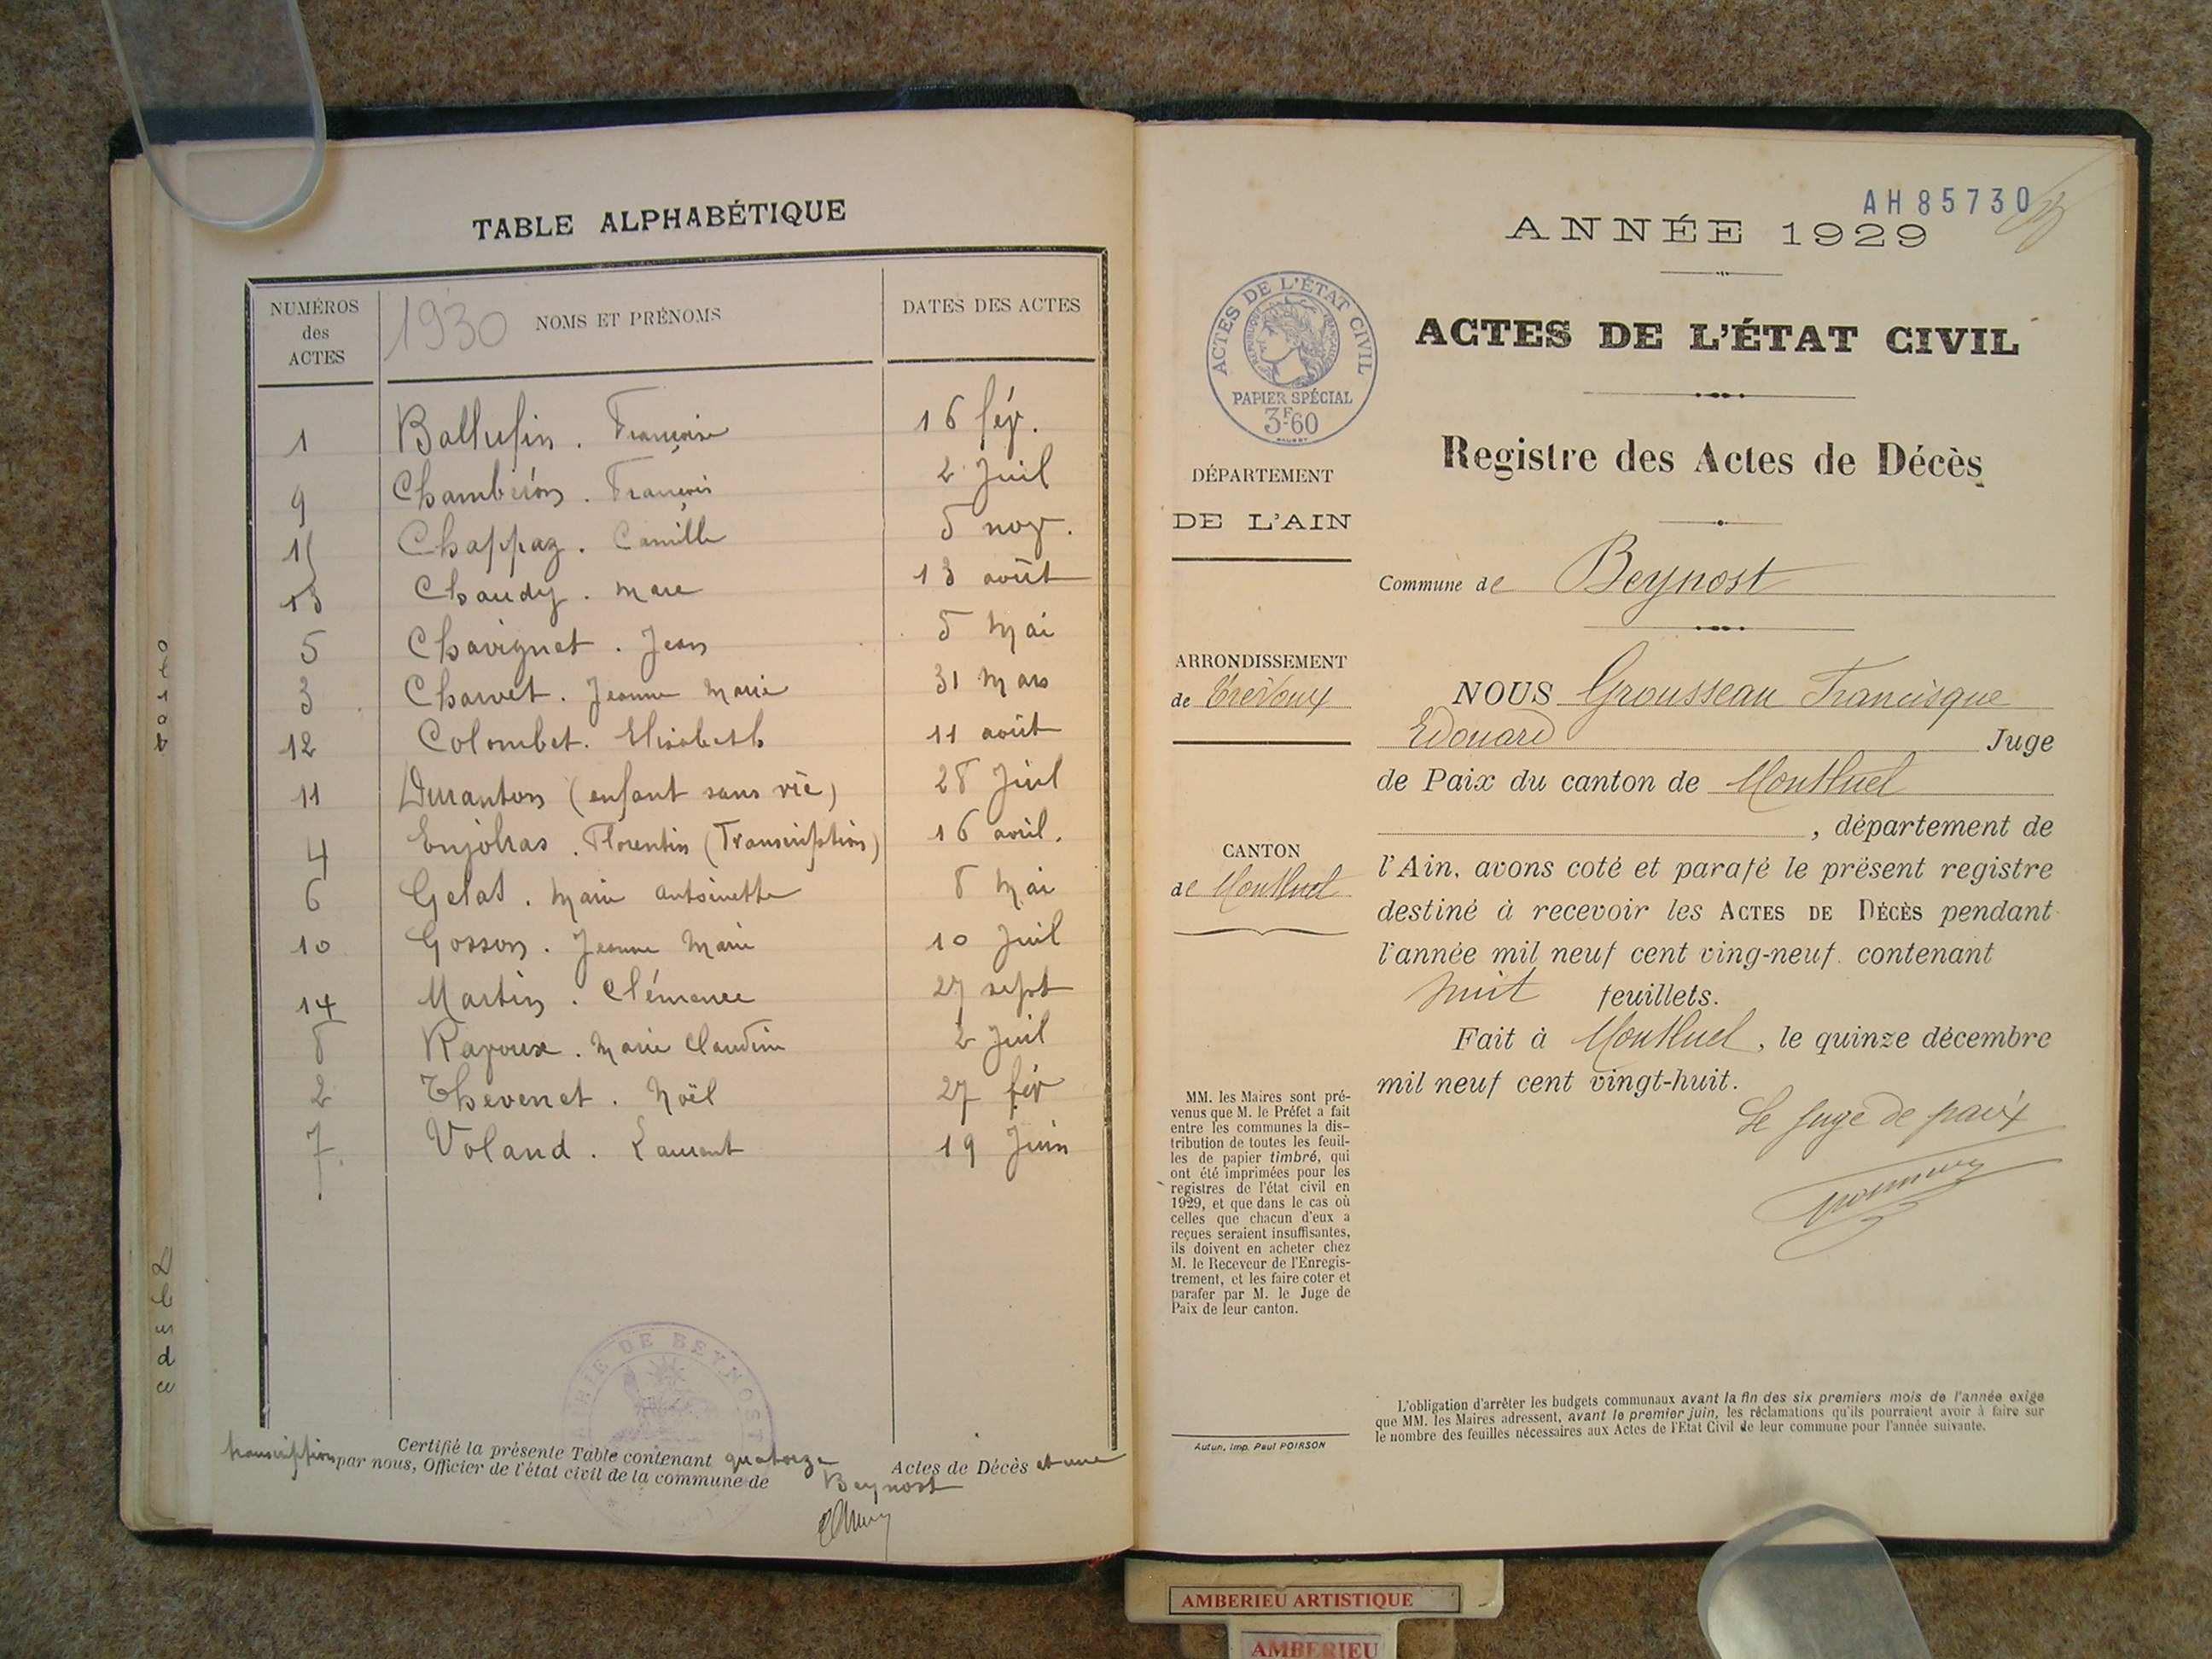 TABLE ALPHABÉTIQUE
NUMÉROS des ACTES 1930 NOMS ET PRÉNOMS DATES DES ACTES
1 Ballufin . Françoise 16 fév.
9 Chambion . François 2 Juil
15 Chappaz . Camille 5 nov.
13 Chaudy . Marc 13 août
5 Chavignet . Jean 5 Mai
3 Charvet . Jeanne Marie 31 Mars
12 Colombet . Elisabeth 11 août
11 Duranton (enfant sans vie) 28 Juil
4 Enjolras . Florentin (Transcription) 16 avril.
6 Gelas . Marie Antoinette 8 Mai
10 Gosson . Jeanne Marie 10 Juil
14 Martin . Clémence 27 sept
8 Rapoux . Marie Claudine 2 Juil
2 Thevenet . Noël 27 fév
7. Voland . Laurent 19 Juin
MAIRIE DE BEYNOST
Certifié la présente Table contenant quatorze Actes de Décès et une
transcription par nous, Officier de l'état civil de la commune de Beynost
AH 85730
ANNÉE 1929
ACTES DE L'ÉTAT CIVIL
RÉPUBLIQUE FRANÇAISE
PAPIER SPÉCIAL
3F60
ACTES DE L'ÉTAT CIVIL
Registre des Actes de Décès
DÉPARTEMENT
DE L'AIN
Commune de Beynost
ARRONDISSEMENT
de Trévoux
CANTON
de Montluel
NOUS Grousseau Francisque
Edouard Juge
de Paix du canton de Montluel
, département de
l'Ain, avons coté et parafé le présent registre
destiné à recevoir les ACTES DE DÉCÈS pendant
l'année mil neuf cent ving-neuf. contenant
huit feuillets.
Fait à Montluel, le quinze décembre
mil neuf cent vingt-huit.
Le Juge de paix
MM. les Maires sont pré-
venus que M. le Préfet a fait
entre les communes la dis-
tribution de toutes les feuil-
les de papier timbré, qui
ont été imprimées pour les
registres de l'état civil en
1929, et que dans le cas où
celles que chacun d'eux a
reçues seraient insuffisantes,
ils doivent en acheter chez
M. le Receveur de l'Enregis-
trement, et les faire coter et
parafer par M. le Juge de
Paix de leur canton.
Autun, Imp. Paul POIRSON
L'obligation d'arrêter les budgets communaux avant la fin des six premiers mois de l'année exige
que MM. les Maires adressent, avant le premier juin, les réclamations qu'ils pourraient avoir à faire sur
le nombre des feuilles nécessaires aux Actes de l'Etat Civil de leur commune pour l'année suivante.
AMBERIEU ARTISTIQUE
AMBERIEU